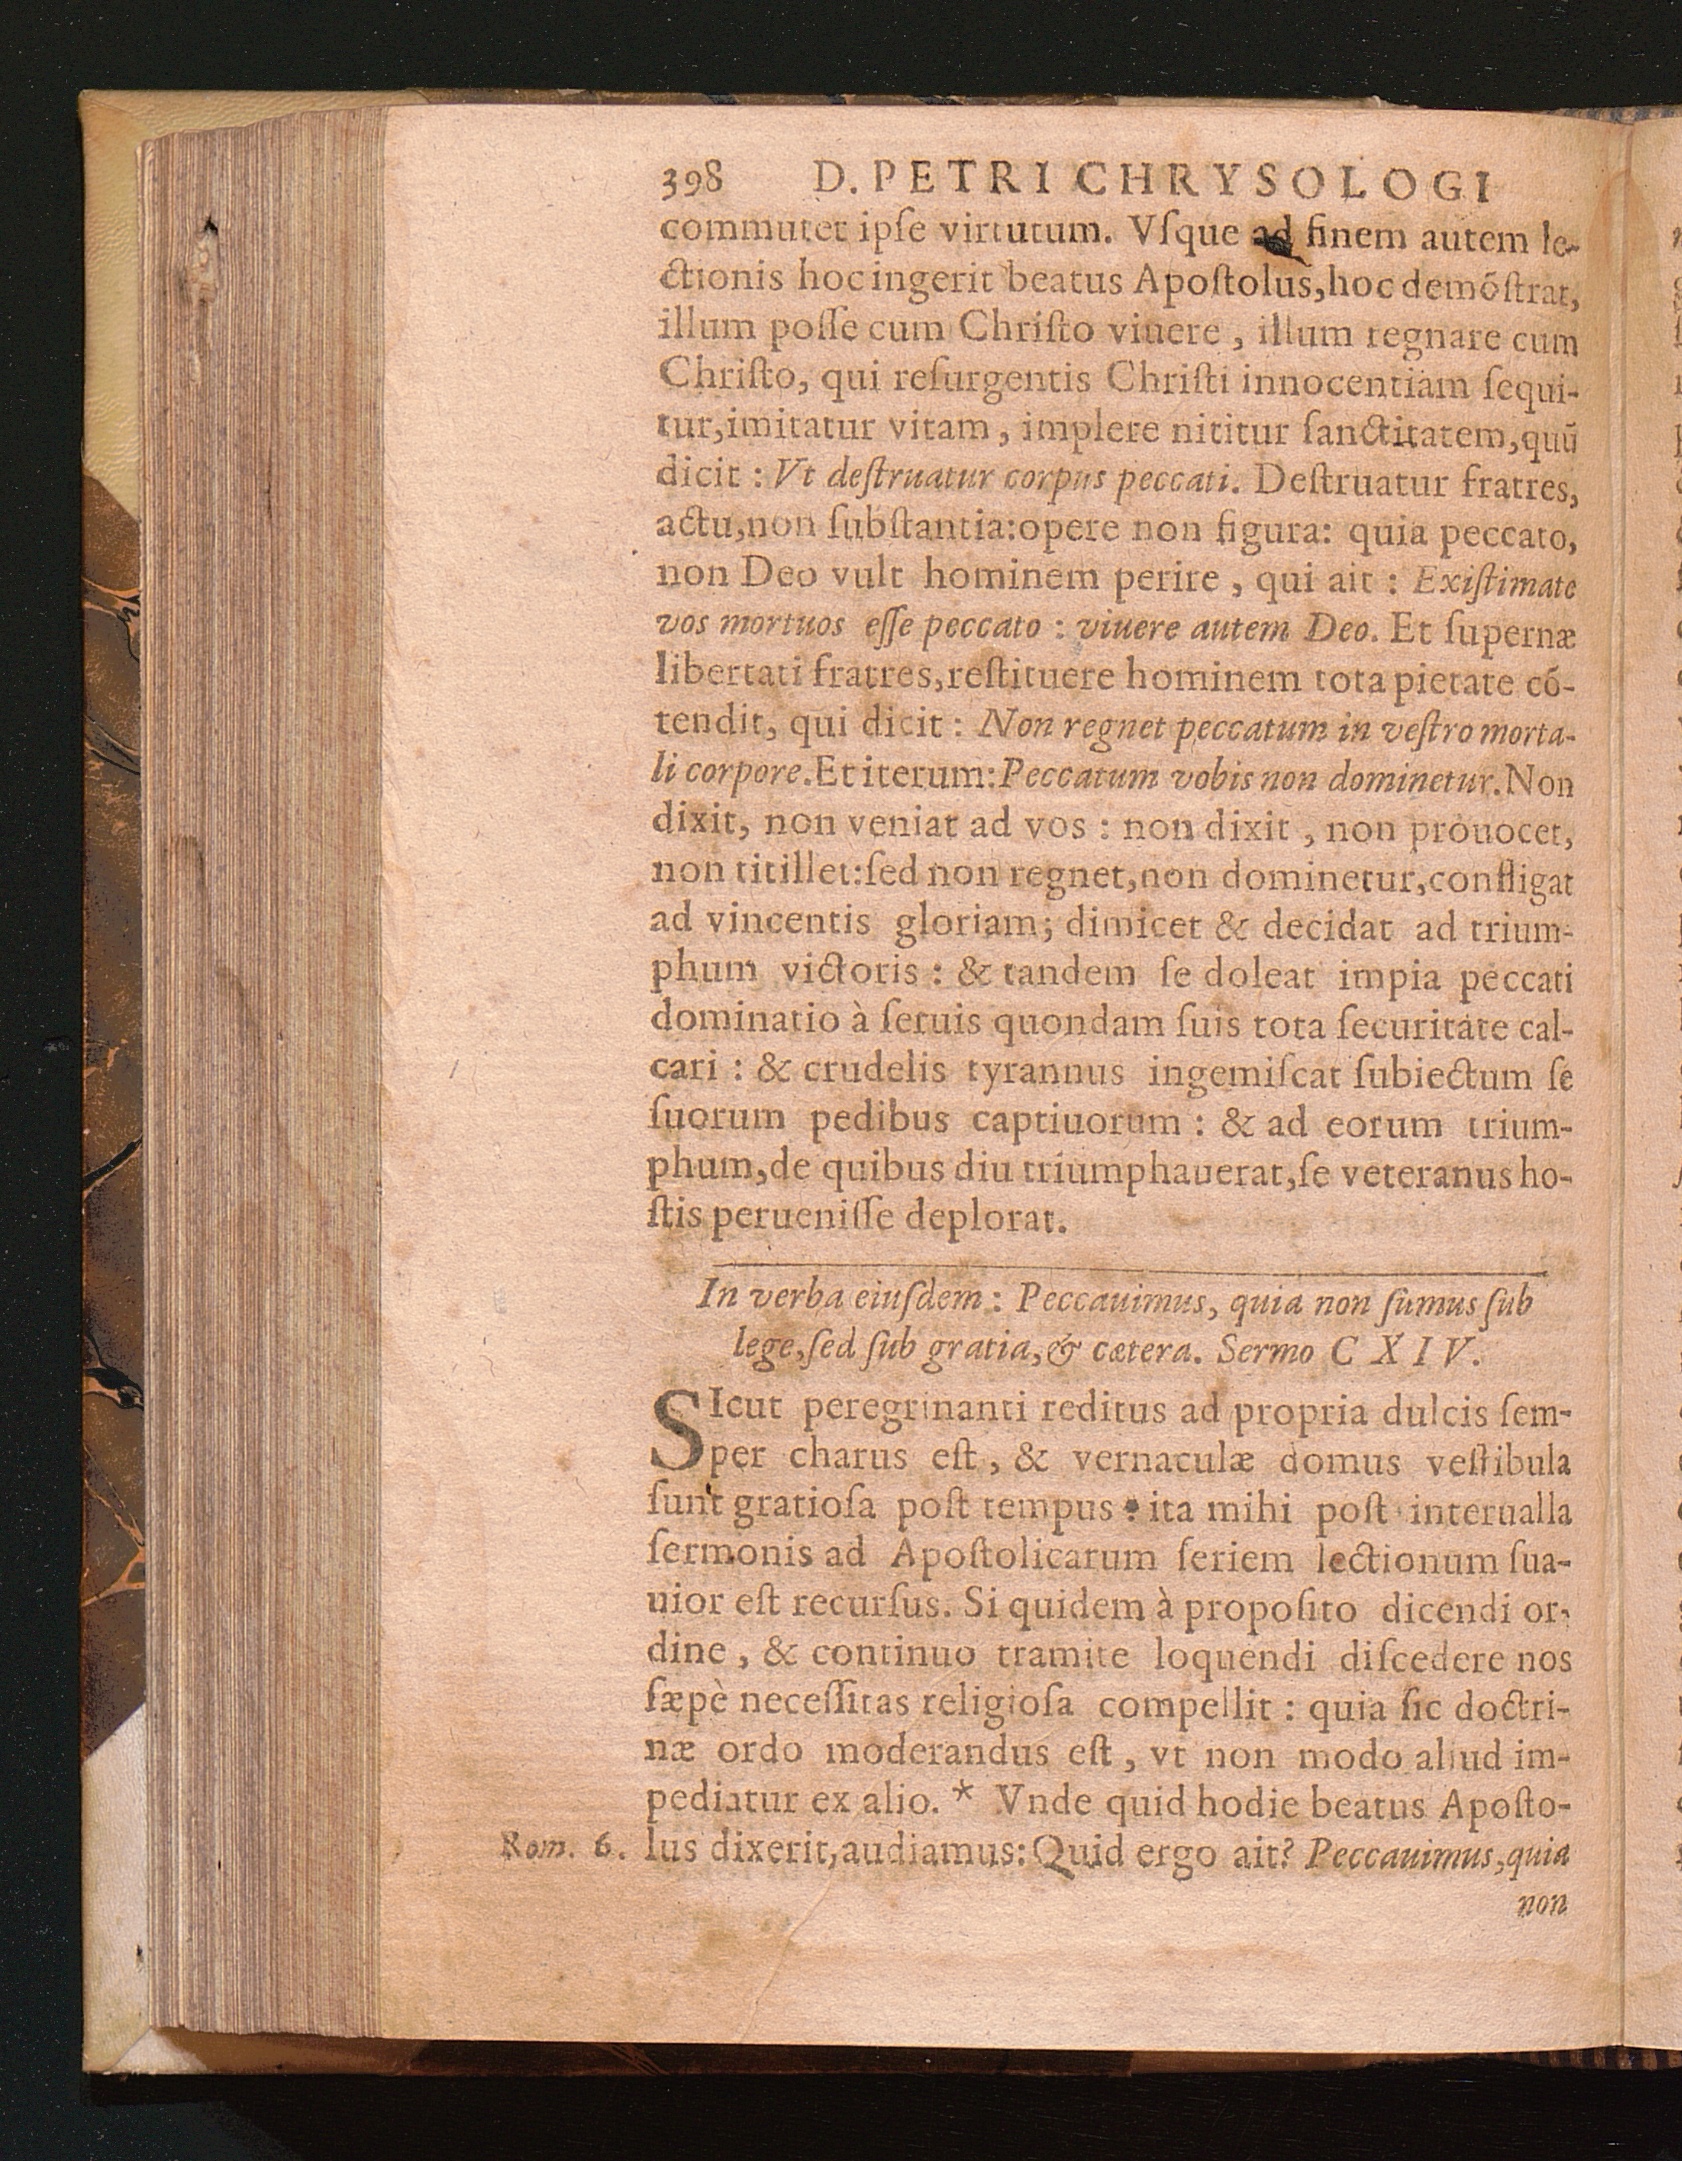 398 D. PETRI CHRYSOLOGI
commutet ipſe virtutum. Vſque ad finem autem le-
ctionis hoc ingerit beatus Apoſtolus,hoc demõſtrat,
illum poſſe cum Chriſto viuere , illum regnare cum
Chriſto, qui reſurgentis Chriſti innocentiam ſequi-
tur,imitatur vitam , implere nititur ſanctitatem,quũ
dicit : Vt deſtruatur corpus peccati. Deſtruatur fratres,
actu,non ſubſtantia:opere non figura: quia peccato,
non Deo vult hominem perire , qui ait : Exiſtimate
vos mortuos eſſe peccato : viuere autem Deo. Et ſupernæ
libertati fratres,reſtituere hominem tota pietate cõ-
tendit, qui dicit : Non regnet peccatum in veſtro morta-
li corpore.Et iterum:Peccatum vobis non dominetur.Non
dixit, non veniat ad vos : non dixit , non prouocet,
non titillet:ſed non regnet,non dominetur,confligat
ad vincentis gloriam; dimicet & decidat ad trium-
phum victoris : & tandem ſe doleat impia peccati
dominatio à ſeruis quondam ſuis tota ſecuritate cal-
cari : & crudelis tyrannus ingemiſcat ſubiectum ſe
ſuorum pedibus captiuorum : & ad eorum trium-
phum,de quibus diu triumphauerat,ſe veteranus ho-
ſtis perueniſſe deplorat.
In verba eiuſdem : Peccauimus, quia non ſumus ſub
lege,ſed ſub gratia,& cætera. Sermo C X I V.
SIcut peregrinanti reditus ad propria dulcis ſem-
per charus eſt , & vernaculæ domus veſtibula
ſunt gratioſa poſt tempus : ita mihi poſt interualla
ſermonis ad Apoſtolicarum ſeriem lectionum ſua-
uior eſt recurſus. Si quidem à propoſito dicendi or-
dine , & continuo tramite loquendi diſcedere nos
ſæpè neceſſitas religioſa compellit : quia ſic doctri-
næ ordo moderandus eſt , vt non modo aliud im-
pediatur ex alio. * Vnde quid hodie beatus Apoſto-
Rom. 6. lus dixerit,audiamus:Quid ergo ait? Peccauimus,quia
non